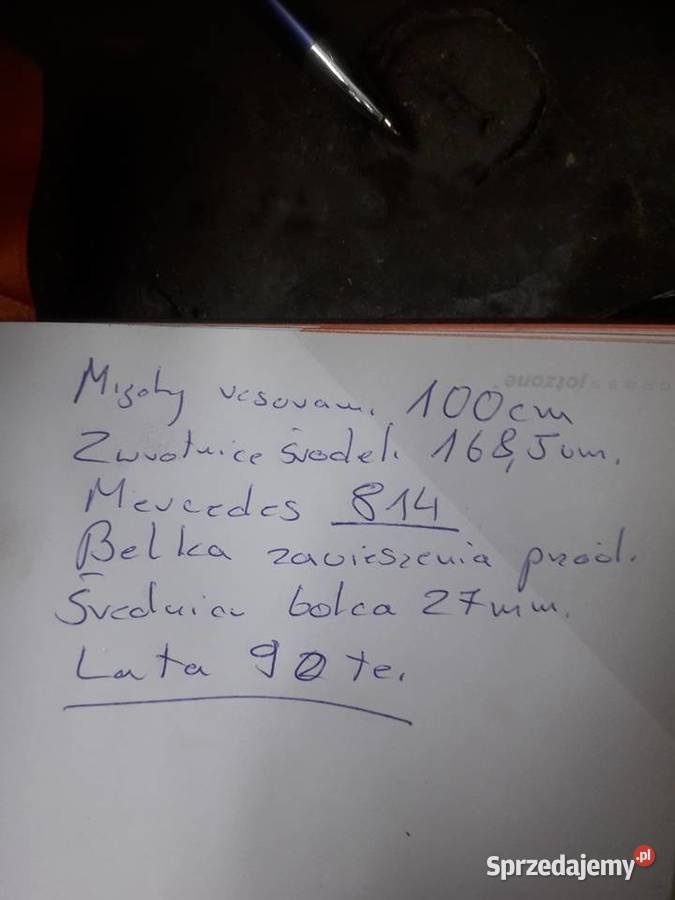 Między resorami 100cm
Zwrotnice środek 168,5 um.
Mercedes 814
Belka zawieszenia przód.
Średnica bolca 27mm.
Lata 90te.
Sprzedajemy.pl